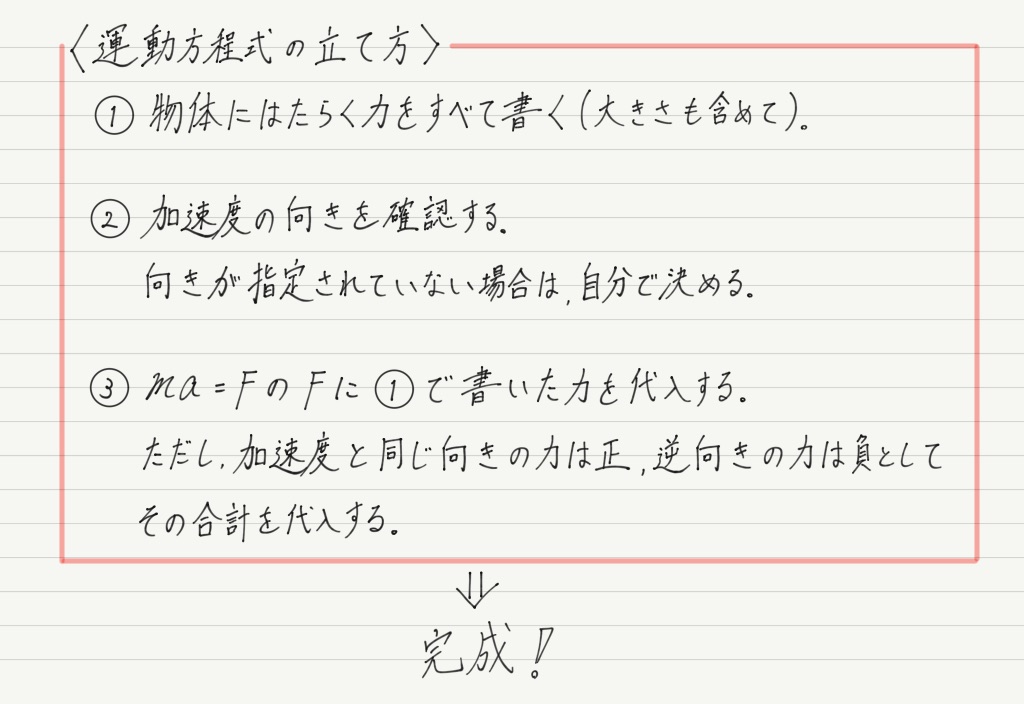 〈運動方程式の立て方〉
① 物体にはたらく力をすべて書く(大きさも含めて)。
② 加速度の向きを確認する。
向きが指定されていない場合は,自分で決める。
③ ma=FのFに①で書いた力を代入する。
ただし,加速度と同じ向きの力は正,逆向きの力は負として
その合計を代入する。
⇓
完成!